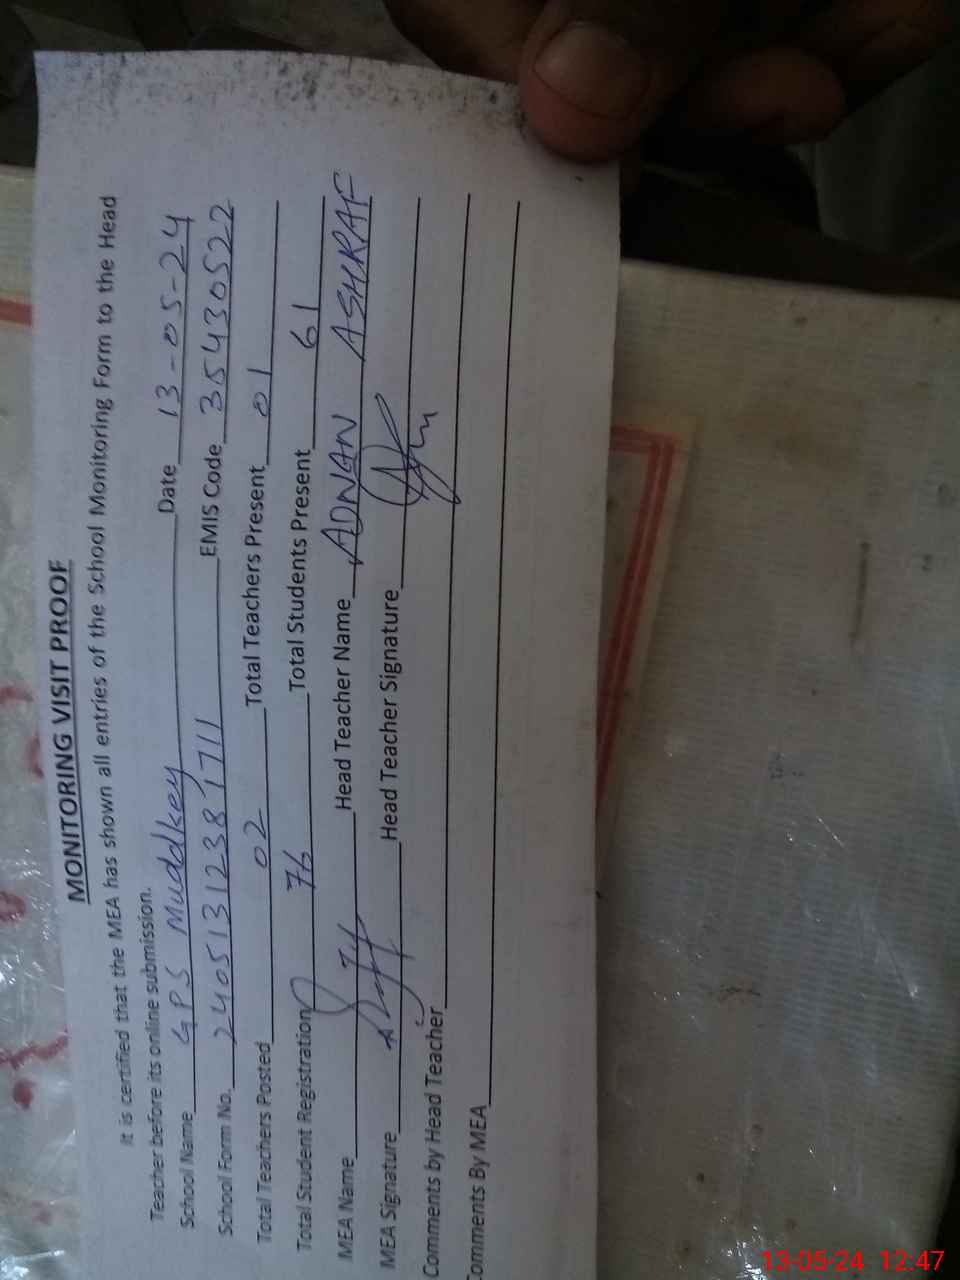 MONITORING VISIT PROOF
It is certified that the MEA has shown all entries of the School Monitoring Form to the Head
Teacher before its online submission.
School Name GPS Muddkey Date 13-05-24
School Form No. 24051312381711 EMIS Code 35430522
Total Teachers Posted 02 Total Teachers Present 01
Total Student Registration 76 Total Students Present 61
MEA Name Head Teacher Name ADNAN ASHRAF
MEA Signature Head Teacher Signature
Comments by Head Teacher
Comments By MEA
13-05-24 12:47